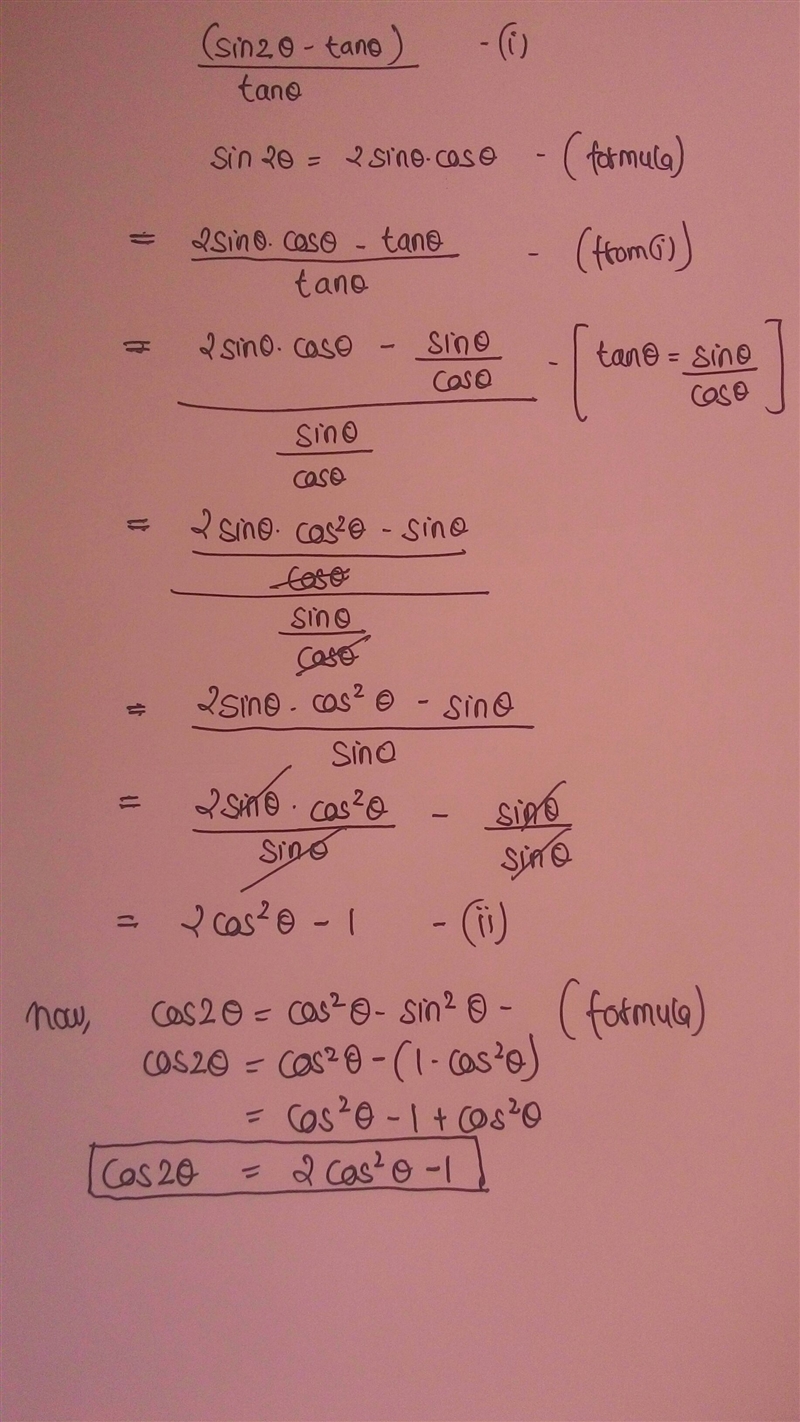 (sin2θ - tanθ) / tanθ - (i)
sin 2θ = 2sinθ·cosθ - (formula)
= 2sinθ·cosθ - tanθ / tanθ - (from(i))
= 2sinθ·cosθ - sinθ/cosθ / sinθ/cosθ - [tanθ = sinθ/cosθ]
= 2sinθ·cos²θ - sinθ / cosθ / sinθ/cosθ
= 2sinθ·cos²θ - sinθ / sinθ
= 2sinθ·cos²θ / sinθ - sinθ / sinθ
= 2cos²θ - 1 - (ii)
now, cos2θ = cos²θ - sin²θ - (formula)
cos2θ = cos²θ - (1 - cos²θ)
= cos²θ - 1 + cos²θ
cos2θ = 2cos²θ - 1